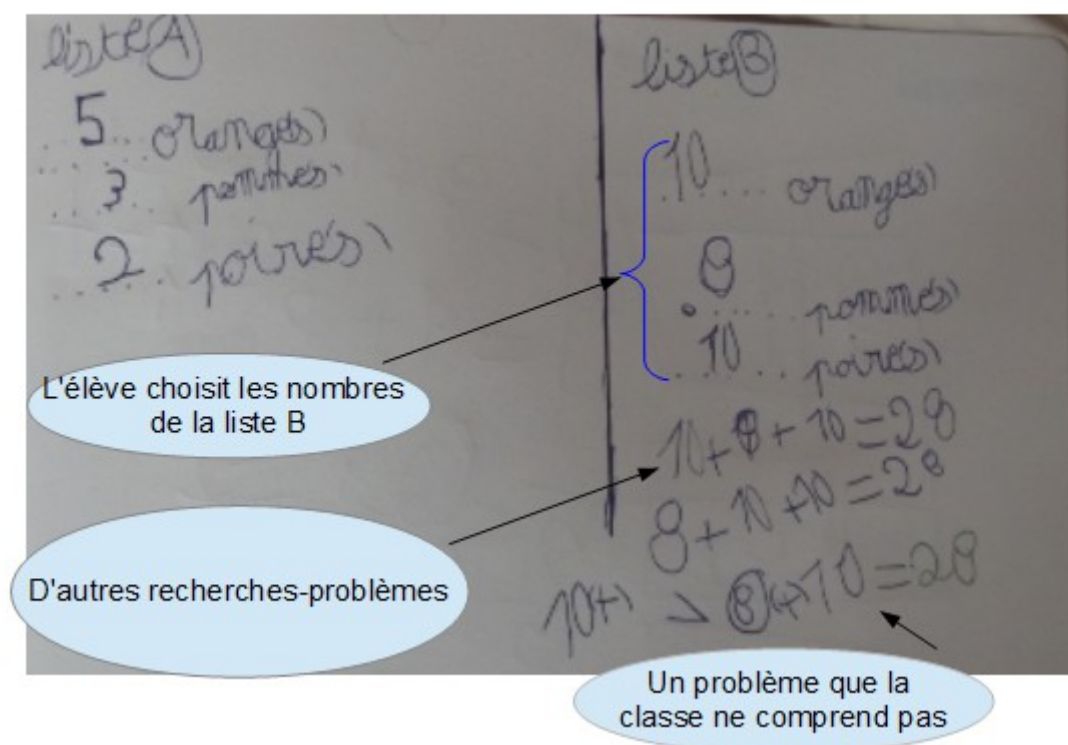 liste A
5 oranges
3 pommes
2 poires
liste B
10 oranges
8 pommes
10 poires
10+8+10=28
8+10+10=28
10(+) > 8(+)10=28
L'élève choisit les nombres
de la liste B
D'autres recherches-problèmes
Un problème que la
classe ne comprend pas